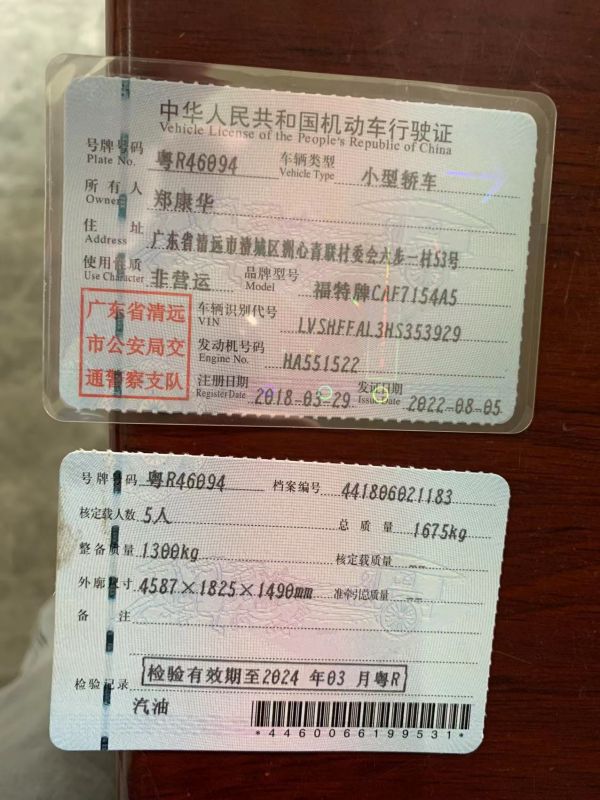 中华人民共和国机动车行驶证
Vehicle License of the People's Republic of China
号牌号码 粤R46094 车辆类型 小型轿车
Plate No. Vehicle Type
所有人 郑康华
Owner
住址 广东省清远市清城区洲心青联村委会六步一村53号
Address
使用性质 非营运 品牌型号 福特牌CAF7154A5
Use Character Model
广东省清远
市公安局交
通警察支队
车辆识别代号 LVSHFFAL3HS353929
VIN
发动机号码 HA551522
Engine No.
注册日期 2018-03-29 发证日期 2022-08-05
Register Date Issue Date
号牌号码 粤R46094 档案编号 441806021183
核定载人数 5人 总质量 1675kg
整备质量 1300kg 核定载质量 --
外廓尺寸 4587×1825×1490mm 准牵引总质量 --
备注
检验记录 检验有效期至2024年03月粤R
汽油
*4460066199531*